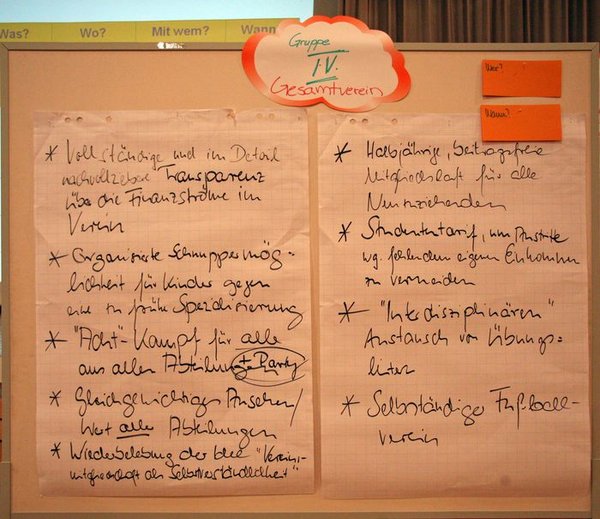 Was?
Wo?
Mit wem?
Wann
Gruppe
IV.
Gesamtverein
Wer?
Wann?
* Vollständige und im Detail
nachvollziehbare Transparenz
über die Finanzströme im
Verein
* Organisierte Schnuppermög-
lichkeit für Kinder gegen
eine zu frühe Spezialisierung
* "Acht"-Kampf für alle
aus allen Abteilung + Party
* Gleichgewichtiges Ansehen/
Wert aller Abteilungen
* Wiederbelebung der Idee "Vereins-
mitgliedschaft als Selbstverständlichkeit"
* Halbjährige, beitragsfreie
Mitgliedschaft für alle
Neuzuziehenden
* Studententarif, um Austritte
wg. fehlendem eigenen Einkommen
zu vermeiden
* "Interdisziplinären"
Austausch von Übungs-
leiter
* Selbständiger Fußball-
verein